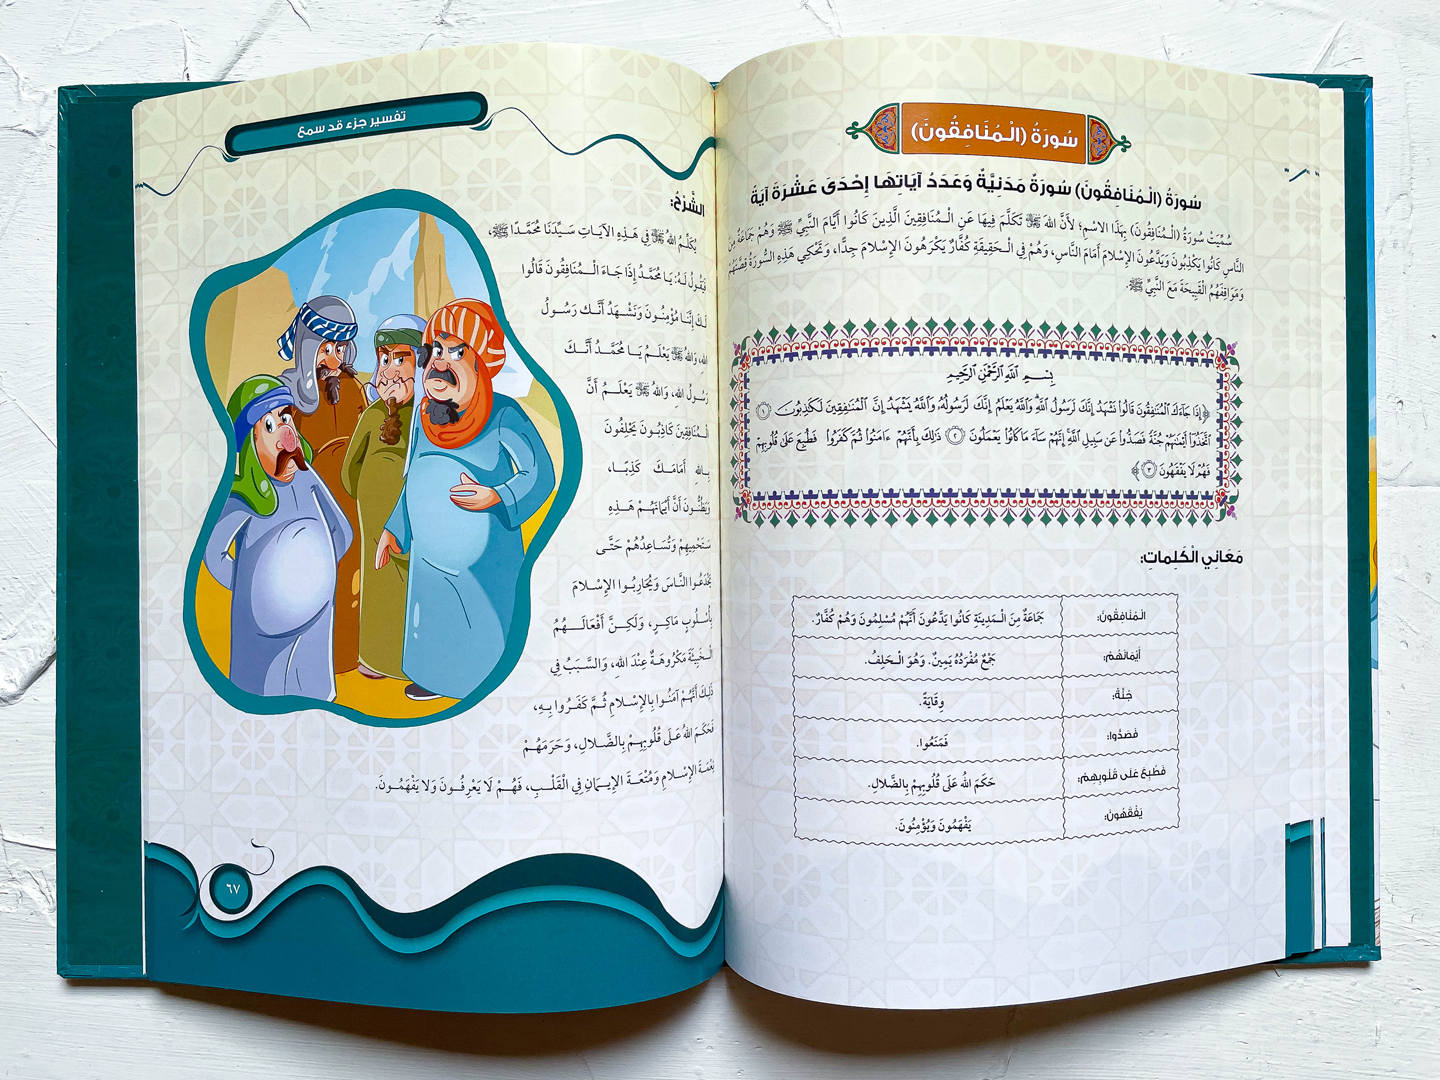 سُورَةُ (الْمُنَافِقُونَ)
سُورَةُ (الْمُنَافِقُونَ) سُورَةٌ مَدَنِيَّةٌ وَعَدَدُ آيَاتِهَا إِحْدَى عَشْرَةَ آيَةً
سُمِّيَتْ سُورَةُ (الْمُنَافِقُونَ) بِهَذَا الاسْمِ؛ لأَنَّ اللهَ ﷻ تَكَلَّمَ فِيهَا عَنِ الْمُنَافِقِينَ الَّذِينَ كَانُوا أَيَّامَ النَّبِيِّ ﷺ وَهُمْ جَمَاعَةٌ مِنَ
النَّاسِ كَانُوا يَكْذِبُونَ وَيَدَّعُونَ الإِسْلامَ أَمَامَ النَّاسِ، وَهُمْ فِي الْحَقِيقَةِ كُفَّارٌ يَكْرَهُونَ الإِسْلامَ جِدًّا، وَتَحْكِي هَذِهِ السُّورَةُ قِصَّتَهُمْ
وَمَوَاقِفَهُمُ الْقَبِيحَةَ مَعَ النَّبِيِّ ﷺ.
بِسْمِ ٱللَّهِ ٱلرَّحْمَٰنِ ٱلرَّحِيمِ
﴿إِذَا جَآءَكَ ٱلْمُنَٰفِقُونَ قَالُوا۟ نَشْهَدُ إِنَّكَ لَرَسُولُ ٱللَّهِ وَٱللَّهُ يَعْلَمُ إِنَّكَ لَرَسُولُهُۥ وَٱللَّهُ يَشْهَدُ إِنَّ ٱلْمُنَٰفِقِينَ لَكَٰذِبُونَ ١
ٱتَّخَذُوٓا۟ أَيْمَٰنَهُمْ جُنَّةً فَصَدُّوا۟ عَن سَبِيلِ ٱللَّهِ إِنَّهُمْ سَآءَ مَا كَانُوا۟ يَعْمَلُونَ ٢ ذَٰلِكَ بِأَنَّهُمْ ءَامَنُوا۟ ثُمَّ كَفَرُوا۟ فَطُبِعَ عَلَىٰ قُلُوبِهِمْ
فَهُمْ لَا يَفْقَهُونَ ٣﴾
مَعَانِي الْكَلِمَاتِ:
الْمُنَافِقُونَ: جَمَاعَةٌ مِنَ الْمَدِينَةِ كَانُوا يَدَّعُونَ أَنَّهُمْ مُسْلِمُونَ وَهُمْ كُفَّارٌ.
أَيْمَانَهُمْ: جَمْعٌ مُفْرَدُهُ يَمِينٌ. وَهُوَ الْحَلِفُ.
جُنَّةً: وِقَايَةً.
فَصَدُّوا: فَمَنَعُوا.
فَطُبِعَ عَلَى قُلُوبِهِمْ: حَكَمَ اللهُ عَلَى قُلُوبِهِمْ بِالضَّلالِ.
يَفْقَهُونَ: يَفْهَمُونَ وَيُؤْمِنُونَ.
تفسير جزء قد سمع
الشَّرْحُ:
يُكَلِّمُ اللهُ ﷻ فِي هَذِهِ الآيَاتِ سَيِّدَنَا مُحَمَّدًا ﷺ،
فَيَقُولُ لَهُ: يَا مُحَمَّدُ إِذَا جَاءَ الْمُنَافِقُونَ قَالُوا
لَكَ إِنَّنَا مُؤْمِنُونَ وَنَشْهَدُ أَنَّكَ رَسُولُ
اللهِ، وَاللهُ ﷻ يَعْلَمُ يَا مُحَمَّدُ أَنَّكَ
رَسُولُ اللهِ، وَاللهُ ﷻ يَعْلَمُ أَنَّ
الْمُنَافِقِينَ كَاذِبُونَ يَحْلِفُونَ
بِاللهِ أَمَامَكَ كَذِبًا،
وَيَظُنُّونَ أَنَّ أَيْمَانَهُمْ هَذِهِ
سَتَحْمِيهِمْ وَتُسَاعِدُهُمْ حَتَّى
يَخْدَعُوا النَّاسَ وَيُحَارِبُوا الإِسْلامَ
بِأُسْلُوبٍ مَاكِرٍ، وَلَكِنَّ أَفْعَالَهُمُ
الْخَبِيثَةَ مَكْرُوهَةٌ عِنْدَ اللهِ، وَالسَّبَبُ فِي
ذَلِكَ أَنَّهُمْ آمَنُوا بِالإِسْلامِ ثُمَّ كَفَرُوا بِهِ،
فَحَكَمَ اللهُ عَلَى قُلُوبِهِمْ بِالضَّلالِ، وَحَرَمَهُمْ
نِعْمَةَ الإِسْلامِ وَمُتْعَةَ الإِيمَانِ فِي الْقَلْبِ، فَهُمْ لَا يَعْرِفُونَ وَلا يَفْهَمُونَ.
٦٧